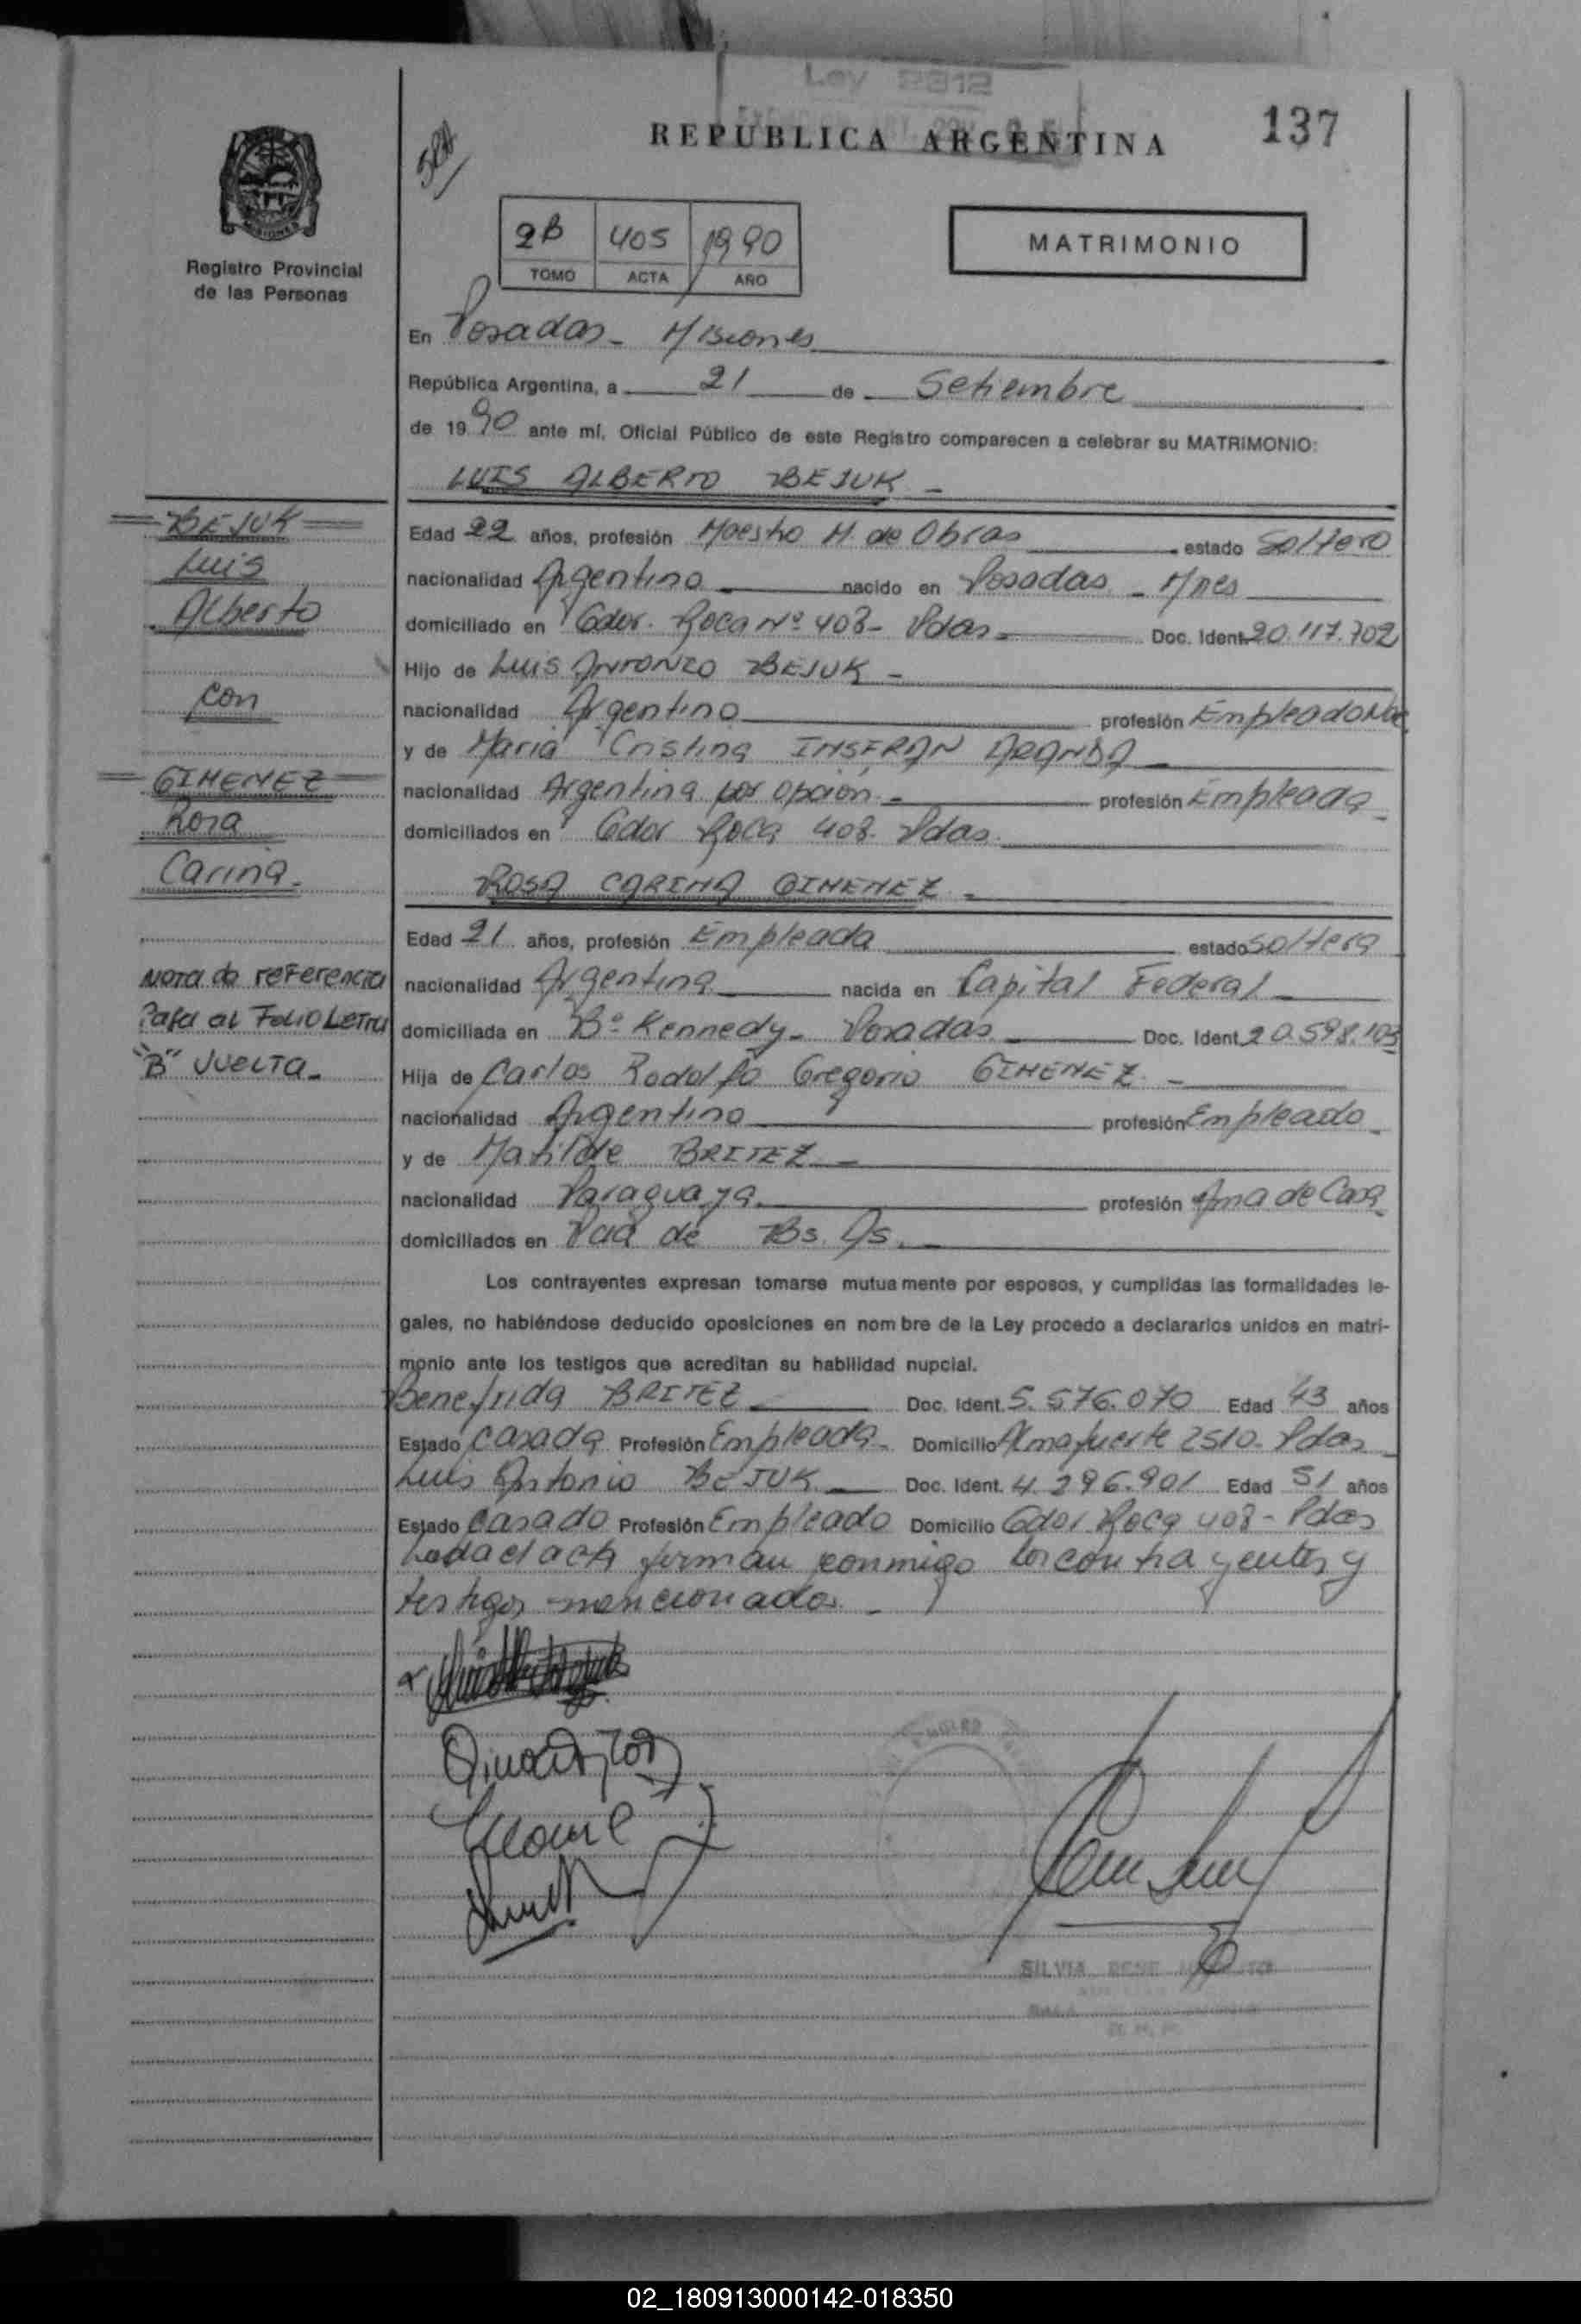 Ley 2312
REPUBLICA ARGENTINA
137
2B 405 1990
TOMO ACTA AÑO
MATRIMONIO
Registro Provincial
de las Personas
En Posadas - Misiones
República Argentina, a 21 de Setiembre
de 1990 ante mí, Oficial Público de este Registro comparecen a celebrar su MATRIMONIO:
LUIS ALBERTO BEJUK -
BEJUK
Luis
Alberto
con
GIMENEZ
Rosa
Carina.
Nota de referencia
Pasa al Folio Letra
"B" Vuelta -
Edad 22 años, profesión Maestro M. de Obras estado Soltero
nacionalidad Argentino nacido en Posadas - Mnes
domiciliado en Gdor. Roca Nº 408 - Pdas - Doc. Ident. 20.117.702
Hijo de Luis ANTONIO BEJUK -
nacionalidad Argentino profesión Empleado
y de María Cristina INSFRAN ARANDA -
nacionalidad Argentina por opción - profesión Empleada
domiciliados en Gdor Roca 408 - Pdas.
ROSA CARINA GIMENEZ -
Edad 21 años, profesión Empleada estado Soltera
nacionalidad Argentina nacida en Capital Federal
domiciliada en Bº Kennedy - Posadas Doc. Ident. 20.598.103
Hija de Carlos Rodolfo Gregorio GIMENEZ -
nacionalidad Argentino profesión Empleado
y de Matilde BRITEZ -
nacionalidad Paraguaya profesión Ama de Casa
domiciliados en Pcia de Bs. As. -
Los contrayentes expresan tomarse mutuamente por esposos, y cumplidas las formalidades le-
gales, no habiéndose deducido oposiciones en nombre de la Ley procedo a declararlos unidos en matri-
monio ante los testigos que acreditan su habilidad nupcial.
Benefrida BRITEZ Doc. Ident. 5.576.070 Edad 43 años
Estado Casada Profesión Empleada Domicilio Almafuerte 2510 - Pdas
Luis Antonio BEJUK Doc. Ident. 4.296.901 Edad 51 años
Estado Casado Profesión Empleado Domicilio Gdor Roca 408 - Pdas
Leída el acta firman conmigo los contrayentes y
testigos mencionados -
SILVIA RENE
02_180913000142-018350